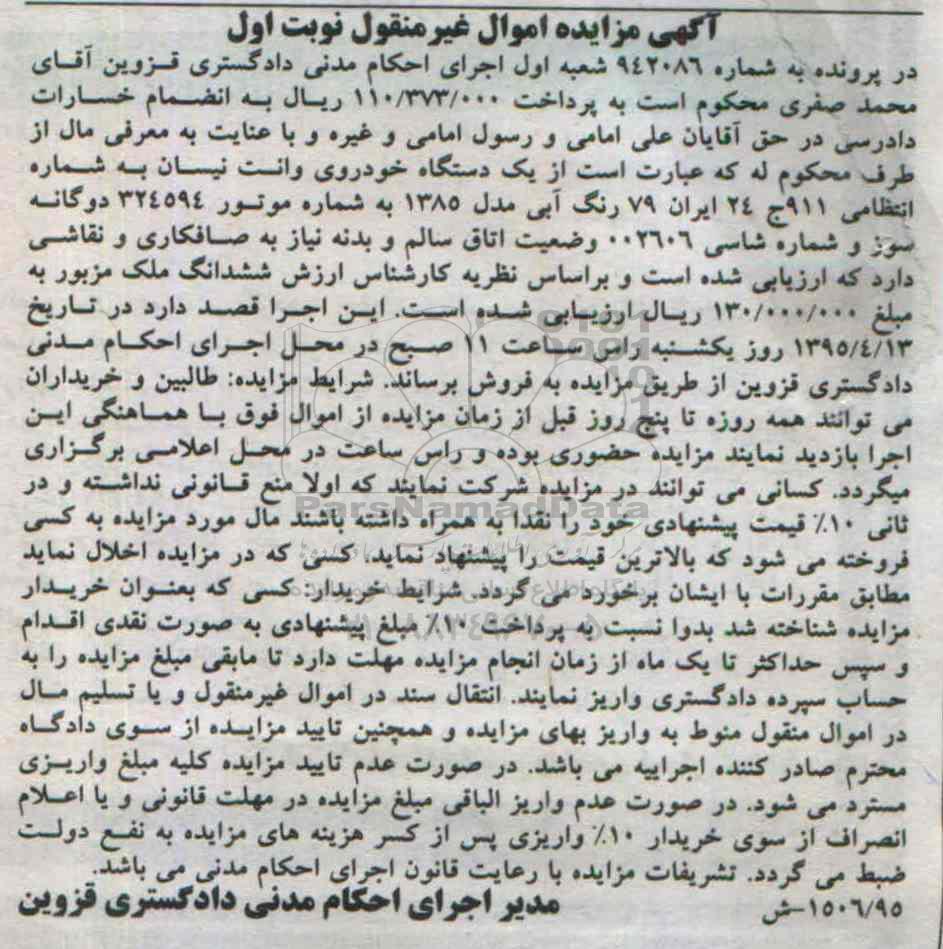 آگهی مزایده اموال غیرمنقول نوبت اول
در پرونده به شماره ۹٤۲۰۸٦ شعبه اول اجرای احکام مدنی دادگستری قزوین آقای
محمد صفری محکوم است به پرداخت ۱۱۰/۳۷۳/۰۰۰ ریال به انضمام خسارات
دادرسی در حق آقایان علی امامی و رسول امامی و غیره و با عنایت به معرفی مال از
طرف محکوم له که عبارت است از یک دستگاه خودروی وانت نیسان به شماره
انتظامی ۹۱۱ج ۲٤ ایران ۷۹ رنگ آبی مدل ۱۳۸٥ به شماره موتور ۳۲٤٥۹٤ دوگانه
سوز و شماره شاسی ۰۰۲٦۰٦ وضعیت اتاق سالم و بدنه نیاز به صافکاری و نقاشی
دارد که ارزیابی شده است و براساس نظریه کارشناس ارزش ششدانگ ملک مزبور به
مبلغ ۱۳۰/۰۰۰/۰۰۰ ریال ارزیابی شده است. این اجرا قصد دارد در تاریخ
۱۳۹٥/٤/۱۳ روز یکشنبه راس ساعت ۱۱ صبح در محل اجرای احکام مدنی
دادگستری قزوین از طریق مزایده به فروش برساند. شرایط مزایده: طالبین و خریداران
می توانند همه روزه تا پنج روز قبل از زمان مزایده از اموال فوق با هماهنگی این
اجرا بازدید نمایند مزایده حضوری بوده و راس ساعت در محل اعلامی برگزاری
میگردد. کسانی می توانند در مزایده شرکت نمایند که اولا منع قانونی نداشته و در
ثانی ۱۰٪ قیمت پیشنهادی خود را نقدا به همراه داشته باشند مال مورد مزایده به کسی
فروخته می شود که بالاترین قیمت را پیشنهاد نماید. کسی که در مزایده اخلال نماید
مطابق مقررات با ایشان برخورد می گردد. شرایط خریدار: کسی که بعنوان خریدار
مزایده شناخته شد بدوا نسبت به پرداخت ۱۰٪ مبلغ پیشنهادی به صورت نقدی اقدام
و سپس حداکثر تا یک ماه از زمان انجام مزایده مهلت دارد تا مابقی مبلغ مزایده را به
حساب سپرده دادگستری واریز نمایند. انتقال سند در اموال غیرمنقول و یا تسلیم مال
در اموال منقول منوط به واریز بهای مزایده و همچنین تایید مزایده از سوی دادگاه
محترم صادر کننده اجراییه می باشد. در صورت عدم تایید مزایده کلیه مبلغ واریزی
مسترد می شود. در صورت عدم واریز الباقی مبلغ مزایده در مهلت قانونی و یا اعلام
انصراف از سوی خریدار ۱۰٪ واریزی پس از کسر هزینه های مزایده به نفع دولت
ضبط می گردد. تشریفات مزایده با رعایت قانون اجرای احکام مدنی می باشد.
۱٥۰٦/۹٥-ش مدیر اجرای احکام مدنی دادگستری قزوین
ParsNamadData